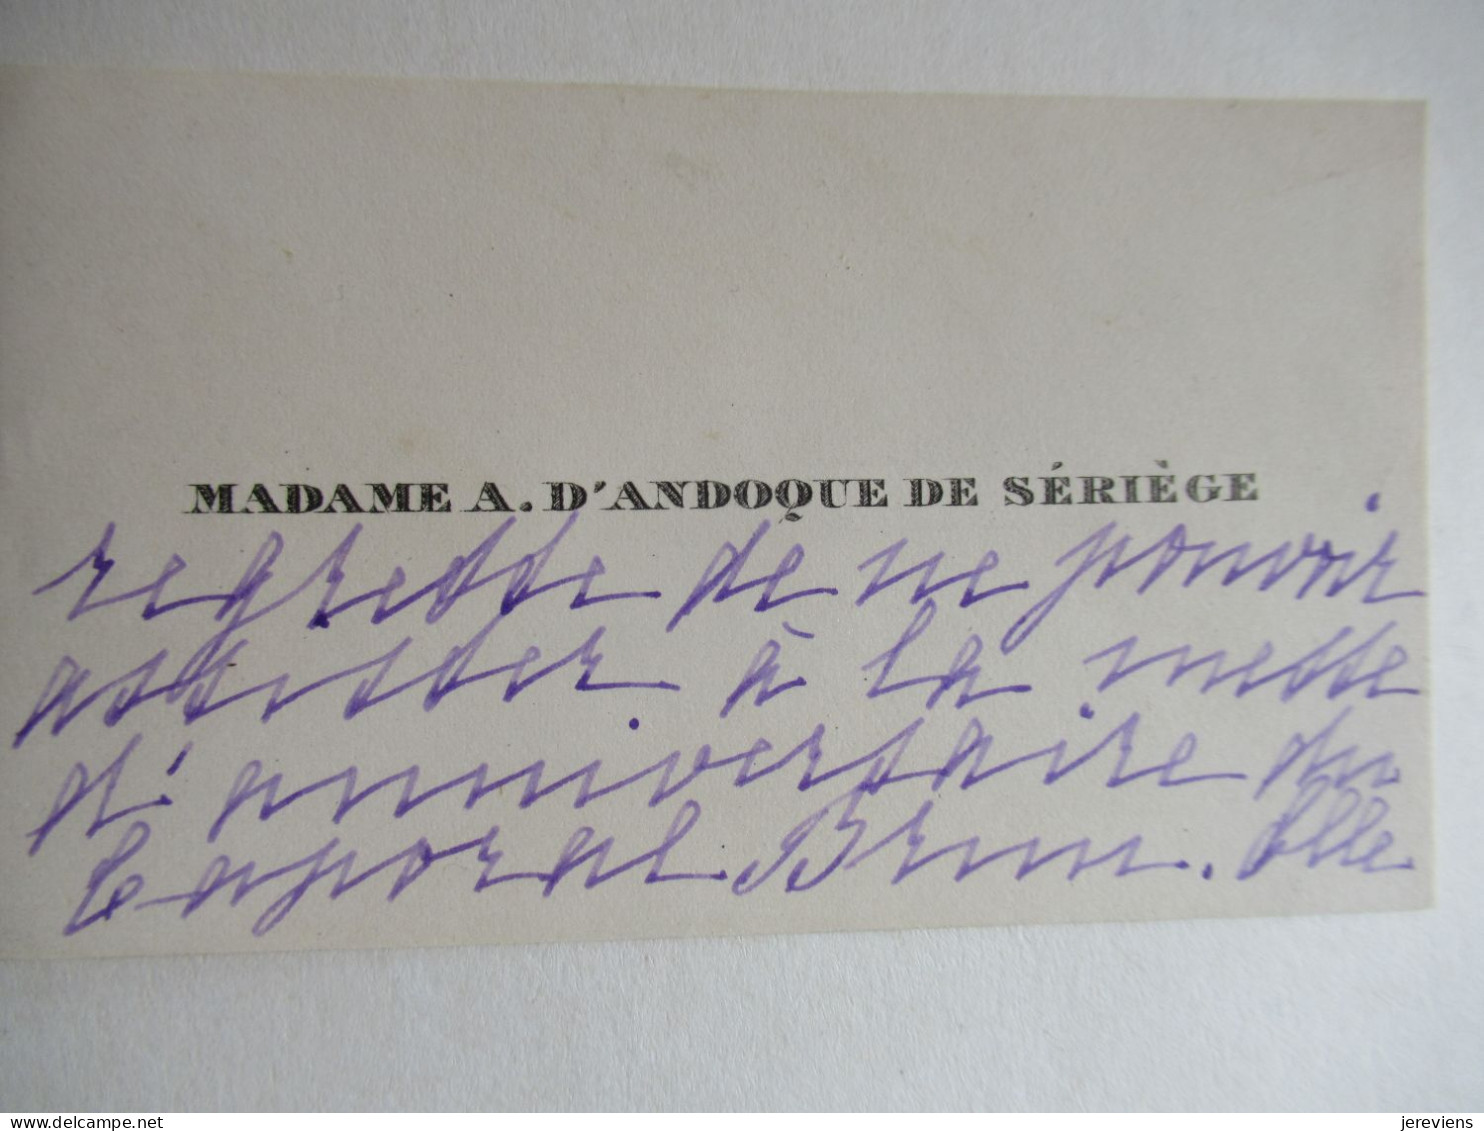 MADAME A. D'ANDOQUE DE SÉRIÈGE
regrette de ne pouvoir
assister à la messe
d'anniversaire du
Caporal Brun. Elle
delcampe.net
jereviens